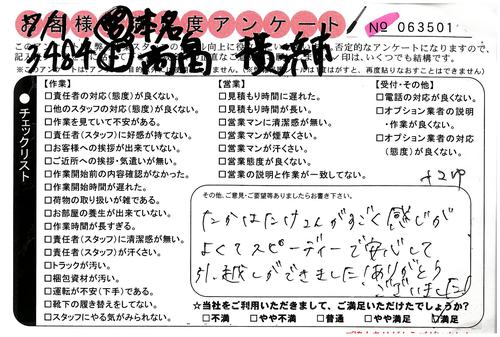 お客様満足度アンケート
№ 063501
3484
否定的なアンケートになりますので、
印は、いくつでも結構です。
再度貼りなおすことはできません
チェックリスト
【作業】
□責任者の対応(態度)が良くない。
□他のスタッフの対応(態度)が良くない。
□作業を見ていて不安がある。
□責任者(スタッフ)に好感が持てない。
□お客様への挨拶が出来ていない。
□ご近所への挨拶・気遣いが無い。
□作業開始前の内容確認がなかった。
□作業開始時間が遅れた。
□荷物の取り扱いが雑である。
□お部屋の養生が出来ていない。
□作業時間が長すぎる。
□責任者(スタッフ)に清潔感が無い。
□責任者(スタッフ)が汗くさい。
□トラックが汚い。
□梱包資材が汚い。
□運転が不安(下手)である。
□靴下の履き替えをしてない。
□スタッフにやる気がみられない。
【営業】
□見積もり時間に遅れた。
□見積もり時間が長い。
□営業マンに清潔感が無い。
□営業マンが煙草くさい。
□営業マンが汗くさい。
□営業態度が良くない。
□営業の説明と作業が一致してない。
【受付・その他】
□電話の対応が良くない。
□オプション業者の説明
・作業が良くない。
□オプション業者の対応
(態度)が良くない。
その他、ご意見・ご要望等ありましたらお書き下さい。
たかはたけさんがすごく感じが
よくてスピーディーで安心して
引っ越しができました!ありがとう
ございました!
☆当社をご利用いただきまして、ご満足いただけたでしょうか?
□不満 □やや不満 □普通 □やや満足 □満足